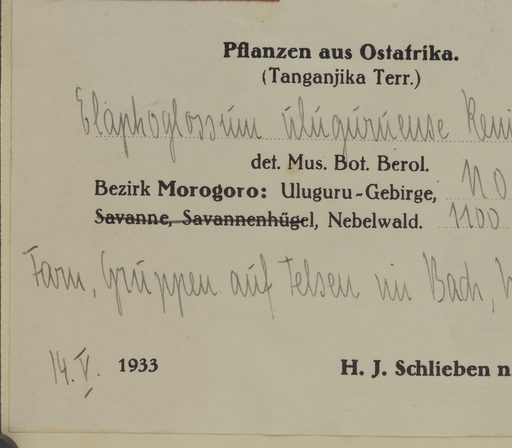 Pflanzen aus Ostafrika.
(Tanganjika Terr.)
Elaphoglossum uluguruense
det. Mus. Bot. Berol.
Bezirk Morogoro: Uluguru-Gebirge, NO
Savanne, Savannenhügel, Nebelwald. 1100
Farn, Gruppen auf Felsen im Bach,
14. V. 1933 H. J. Schlieben